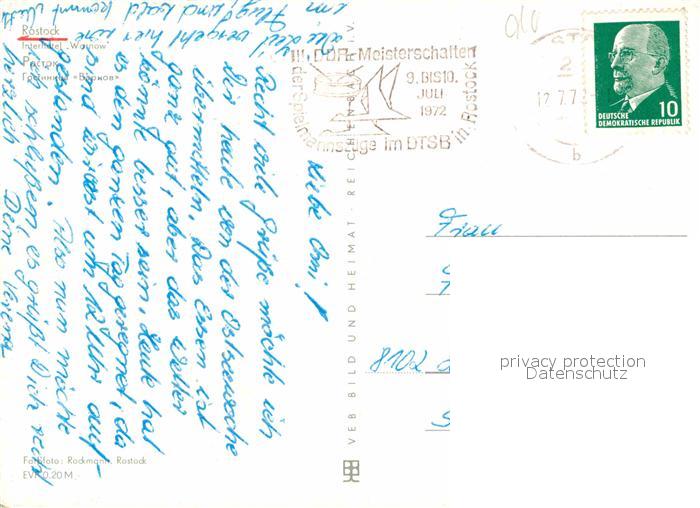 Rostock
Interhotel „Warnow"
Росток
Гостиница «Варнов»
III. DDR-Meisterschaften
der Spielmannszüge im DTSB in Rostock
9. BIS 10.
JULI
1972
12.7.7
2
b
DEUTSCHE
DEMOKRATISCHE REPUBLIK
10
Liebe Omi!
Recht viele Grüße möchte ich
Dir heute von der Ostseewoche
übermitteln. Das Essen ist
ganz gut, aber das Wetter
könnte besser sein. Heute hat
es den ganzen Tag geregnet, da
sind wir erst um 12 Uhr auf-
gestanden. Also nun möchte
ich schließen, es grüßt Dich recht
herzlich Deine Verena
vergeht hier wie
im Flug, und bald kommt
VEB BILD UND HEIMAT · REICHENBACH I. V.
Frau
8102
privacy protection
Datenschutz
Farbfoto: Rockmann, Rostock
EVP 0.20 M